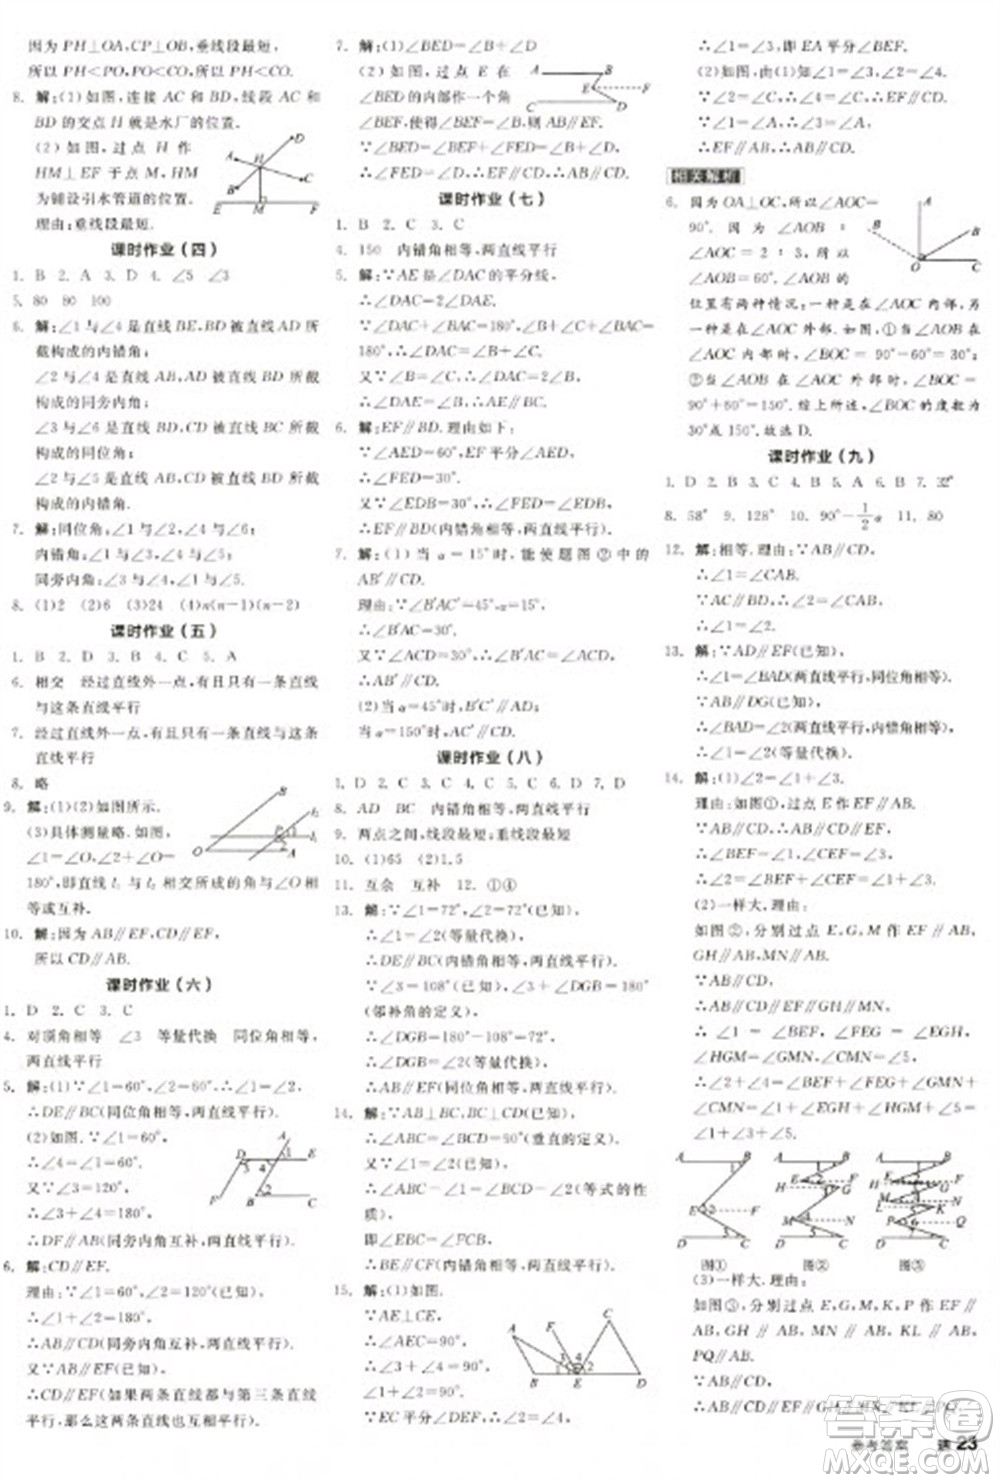 因为 PH⊥OA,CP⊥OB,垂线段最短,
所以 PH<PO,PO<OC.
8. 解:(1)如图,连接 AC 和 BD,线段 AC 和
BD 的交点 H 就是水厂的位置.
(2)如图,过点 H 作
HM⊥EF 于点 M,HM
为铺设引水管道的位置.
理由:垂线段最短.
课时作业(四)
1. B 2. A 3. D 4. ∠5 ∠3
5. 80 80 100
6. 解:∠1 与∠4 是直线 BE,BD 被直线 AD 所
截构成的内错角;
∠2 与∠4 是直线 AC,AD 被直线 BD 所截
构成的同旁内角;
∠3 与∠6 是直线 AC,BD 被直线 AD 所截
构成的同位角;
∠2 与∠5 是直线 AB,CD 被直线 BD 所截
构成的内错角.
7. 解:同位角,∠1 与∠2,∠5 与∠6;
内错角:∠1 与∠3,∠4 与∠5;
同旁内角:∠3 与∠4,∠1 与∠5.
8. (1)2 (2)6 (3)24 (4)n(n−1)(n−2)
课时作业(五)
1. B 2. D 3. B 4. C 5. A
6. 相交 经过直线外一点,有且只有一条直
线与这条直线平行
7. 经过直线外一点,有且只有一条直线与这
条直线平行
8. 略
9. 解:(1)(2)如图所示.
(3)具体测量略.如图,
∠1=∠O,∠2+∠O=
180°,即直线 l₁ 与 l₂ 相交所成的角与∠O 相
等或互补.
10. 解:因为 AB∥EF,CD∥EF,
所以 CD∥AB.
课时作业(六)
1. D 2. C 3. C
4. 对顶角相等 ∠3 等量代换 同位角相等,
两直线平行
5. 解:(1)∵∠1=60°,∠2=60°,∴∠1=∠2,
∴DE∥BC(同位角相等,两直线平行).
(2)如图.∵∠1=60°,
∴∠4=∠1=60°.
又∵∠3=120°,
∴∠3+∠4=180°,
∴DF∥BE(同旁内角互补,两直线平行).
6. 解:CD∥EF.
理由:∵∠1=60°,∠2=120°(已知),
∴∠1+∠2=180°,
∴AB∥CD(同旁内角互补,两直线平行).
又∵AB∥EF(已知),
∴CD∥EF(如果两条直线都与第三条直线
平行,那么这两条直线也互相平行).
7. 解:(1)∠BED=∠B+∠D
(2)如图,过点 E 在
∠BED 的内部作一个角
∠BEF,使得∠BEF=
∠B,则 AB∥EF.
∵∠BED=∠B+∠D,
∴∠FED=∠D,∴EF∥CD,∴AB∥CD.
课时作业(七)
1. B 2. C 3. C
4. 150 内错角相等,两直线平行
5. 解:∵AE 是∠DAC 的平分线,
∴∠DAC=2∠DAE.
∵∠DAC+∠BAC=180°,∠B+∠C+∠BAC=
180°,∴∠DAC=∠B+∠C.
又∵∠B=∠C,∴∠DAC=2∠B,
∴∠DAE=∠B,∴AE∥BC.
6. 解:EF∥BD.理由如下:
∵∠AED=60°,EF平分∠AED,
∴∠FED=30°.
又∵∠EDB=30°,∴∠FED=∠EDB,
∴EF∥BD(内错角相等,两直线平行).
7. 解:(1)当 α=15°时,能使题图②中的
AB′∥CD.
理由:∵∠B′AC′=45°,α=15°,
∴∠B′AC=30°.
又∵∠C=30°,∴∠B′AC=∠C,
∴AB′∥CD.
(2)当 α=45°时,B′C′∥AD;
当 α=105°时,AC′∥CD.
课时作业(八)
1. D 2. C 3. C 4. C 5. C 6. D 7. D
8. AD BC 内错角相等,两直线平行
9. 两点之间,线段最短;垂线段最短
10. (1)65 (2)1.5
11. 互余 互补 12. ①④
13. 解:∵∠1=72°,∠2=72°(已知),
∴∠1=∠2(等量代换),
∴DE∥BC(内错角相等,两直线平行).
∵∠3=108°(已知),∠3+∠DGB=180°
(邻补角的定义),
∴∠DGB=180°−108°=72°,
∴∠DGB=∠2(等量代换),
∴AB∥EF(同位角相等,两直线平行).
14. 解:∵AB⊥BC,BC⊥CD(已知),
∴∠ABC=∠BCD=90°(垂直的定义).
又∵∠1=∠2(已知),
∴∠ABC−∠1=∠BCD−∠2(等式的性
质),
即∠EBC=∠FCB,
∴BE∥CF(内错角相等,两直线平行).
15. 解:(1)如图.
∵AE⊥CE,
∴∠AEC=90°,
∴∠3+∠4=90°,
∠1+∠2=90°.
又∵EC 平分∠DEF,∴∠4=∠2,
∴∠1=∠3,即 EA 平分∠BEF.
(2)由(1)知∠1=∠3,∠2=∠4.
∵∠4=∠C,∴∠2=∠C,∴EF∥CD.
∵∠1=∠A,∴∠3=∠A,
∴EF∥AB,∴AB∥CD.
相关解析
6. 因为 OA⊥OC,所以∠AOC=
90°.因为∠AOB:
∠AOC=2:3,所以
∠AOB=60°.∠AOB 的
位置有两种情况:一种是在∠AOC 内部,另
一种是在∠AOC 外部.如图,①当∠AOB
在∠AOC 内部时,∠BOC=90°−60°=30°;
②当∠AOB 在∠AOC 外部时,∠BOC=
90°+60°=150°.综上所述,∠BOC的度数为
30°或 150°.故选 D.
课时作业(九)
1. D 2. B 3. C 4. B 5. A 6. B 7. 32°
8. 58° 9. 128° 10. 90°−1/2α 11. 80
12. 解:相等.理由:∵AB∥CD,
∴∠1=∠BAC.
∵AC∥BD,∴∠2=∠BAC,
∴∠1=∠2.
13. 解:∵AD∥EF(已知),
∴∠1=∠BAD(两直线平行,同位角相等).
∵AB∥DG(已知),
∴∠BAD=∠2(两直线平行,内错角相等),
∴∠1=∠2(等量代换).
14. 解:(1)∠2=∠1+∠3.
理由:如图①,过点 E 作 EF∥AB.
∵AB∥CD,∴AB∥CD∥EF,
∴∠BEF=∠1,∠CEF=∠3,
∴∠2=∠BEF+∠CEF=∠1+∠3.
(2)一样大,理由:
如图②,分别过点 E,G,M 作 EF∥AB,
GH∥AB,MN∥AB.
∵AB∥CD,
∴CD∥AB∥EF∥GH∥MN,
∴∠1=∠BEF,∠FEG=∠EGH,
∠HGM=∠GMN,∠CMN=∠5,
∴∠2+∠4=∠BEF+∠FEG+∠GMN+
∠CMN=∠1+∠EGH+∠HGM+∠5=
∠1+∠3+∠5.
图① 图② 图③
(3)一样大.理由:
如图③,分别过点 E,G,M,K,P 作 EF∥
AB,GH∥AB,ML∥AB,KL∥AB,
PQ∥AB.
∵AB∥CD,
答案圈
MXQE.COM
参考答案 23